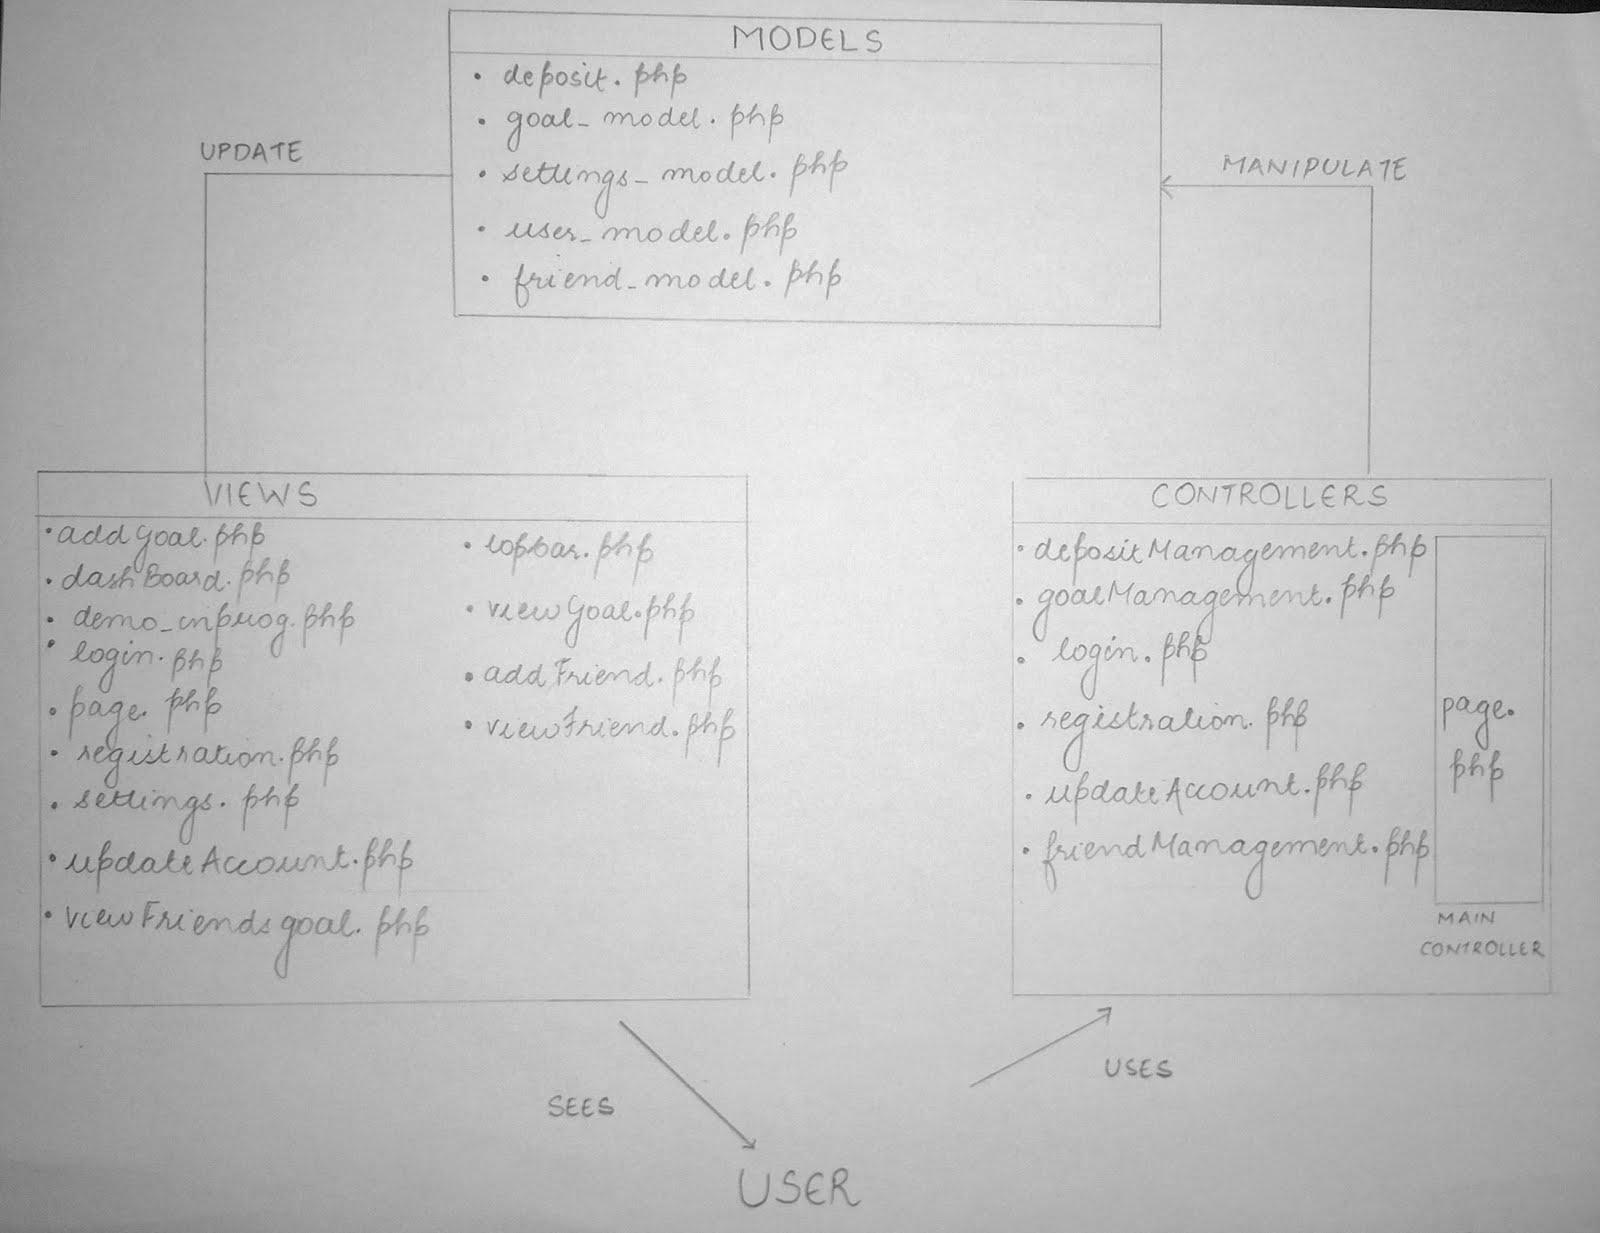 MODELS
• deposit.php
• goal_model.php
• settings_model.php
• user_model.php
• friend_model.php
UPDATE
MANIPULATE
VIEWS
• addGoal.php
• dashBoard.php
• demo_inprog.php
• login.php
• page.php
• registration.php
• settings.php
• updateAccount.php
• viewFriendsgoal.php
• topbar.php
• viewGoal.php
• addFriend.php
• viewFriend.php
CONTROLLERS
• depositManagement.php
• goalManagement.php
• login.php
• registration.php
• updateAccount.php
• friendManagement.php
page.
php
MAIN
CONTROLLER
SEES
USES
USER